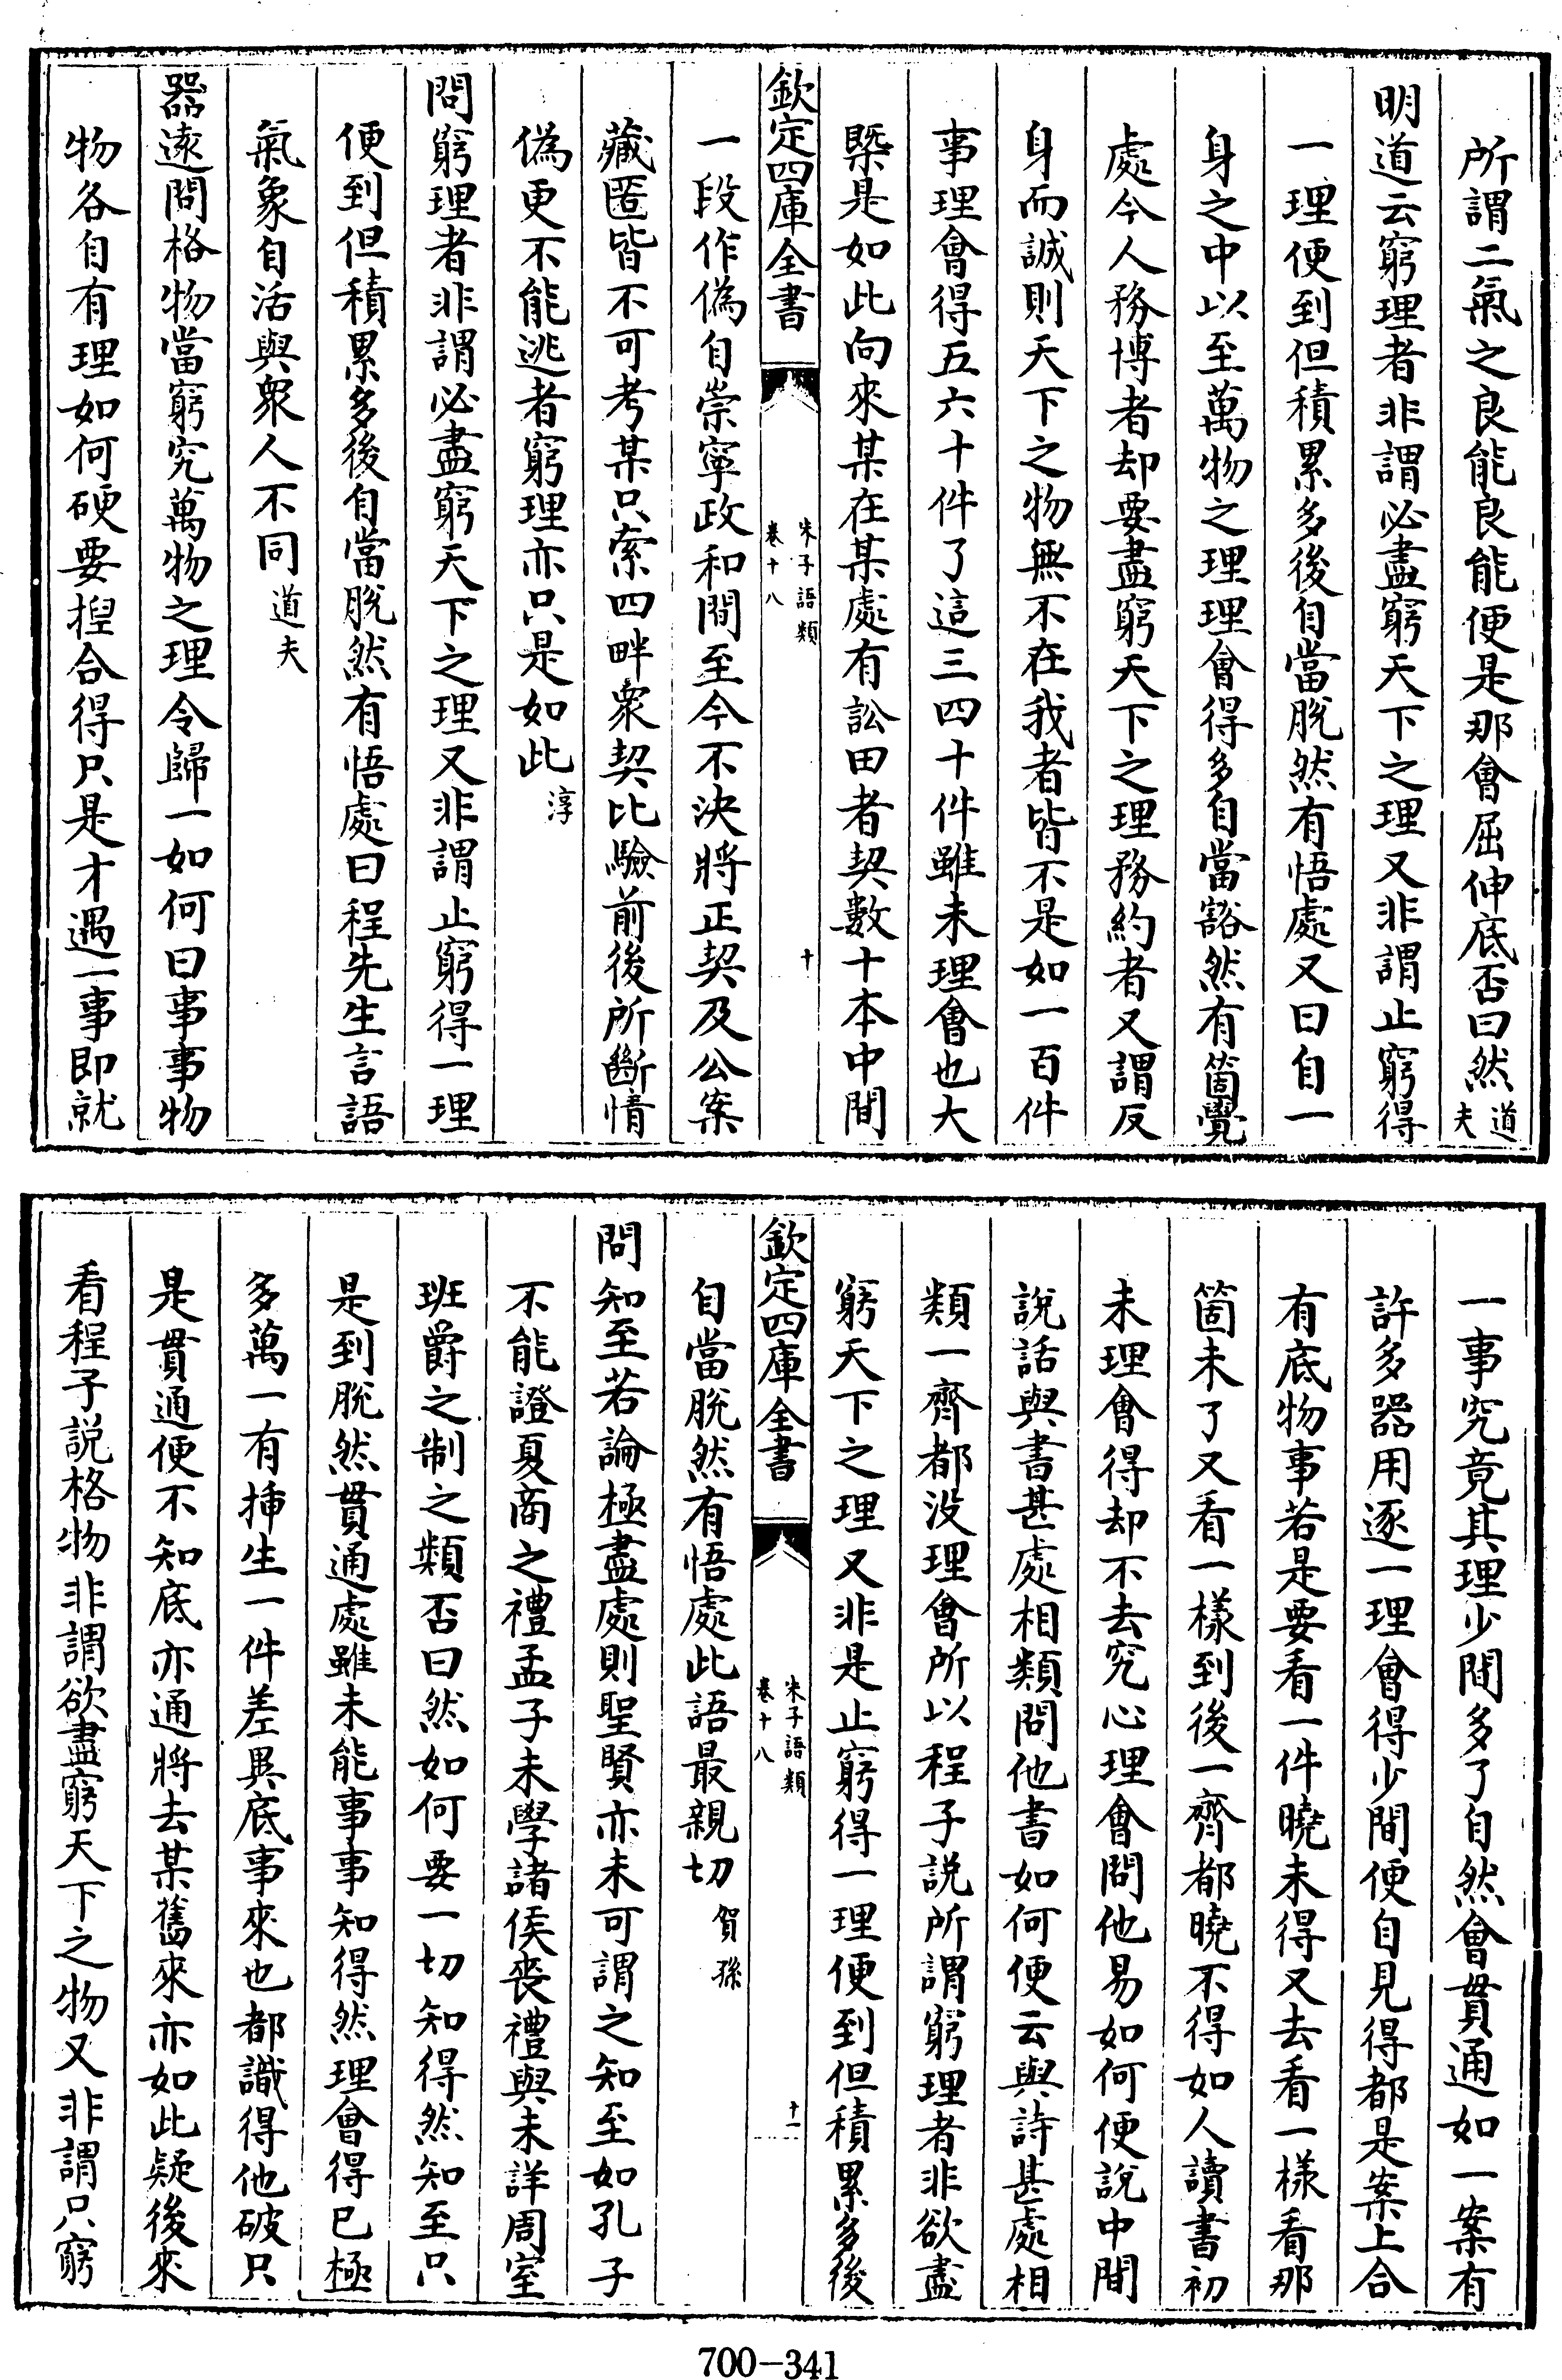 所謂二氣之良能良能便是那會屈伸底否曰然道夫
明道云窮理者非謂必盡窮天下之理又非謂止窮得
一理便到但積累多後自當脱然有悟處又曰自一
身之中以至萬物之理理會得多自當豁然有箇覺
處今人務博者却要盡窮天下之理務約者又謂反
身而誠則天下之物無不在我者皆不是如一百件
事理會得五六十件了這三四十件雖未理會也大
槩是如此向來某在某處有訟田者契數十本中間
欽定四庫全書
朱子語類
卷十八
十
一段作偽自崇寧政和間至今不決將正契及公案
藏匿皆不可考某只索四畔衆契比驗前後所斷情
偽更不能逃者窮理亦只是如此淳
問窮理者非謂必盡窮天下之理又非謂止窮得一理
便到但積累多後自當脱然有悟處曰程先生言語
氣象自活與衆人不同道夫
器遠問格物當窮究萬物之理令歸一如何曰事事物
物各自有理如何硬要揑合得只是才遇一事即就
一事究竟其理少間多了自然會貫通如一案有
許多器用逐一理會得少間便自見得都是案上合
有底物事若是要看一件曉未得又去看一樣看那
箇未了又看一樣到後一齊都曉不得如人讀書初
未理會得却不去究心理會問他易如何便說中間
說話與書甚處相類問他書如何便云與詩甚處相
類一齊都没理會所以程子説所謂窮理者非欲盡
窮天下之理又非是止窮得一理便到但積累多後
欽定四庫全書
朱子語類
卷十八
十一
自當脱然有悟處此語最親切賀孫
問知至若論極盡處則聖賢亦未可謂之知至如孔子
不能證夏商之禮孟子未學諸侯喪禮與未詳周室
班爵之制之類否曰然如何要一切知得然知至只
是到脱然貫通處雖未能事事知得然理會得已極
多萬一有揷生一件差異底事來也都識得他破只
是貫通便不知底亦通將去某舊來亦如此疑後來
看程子説格物非謂欲盡窮天下之物又非謂只窮
700-341